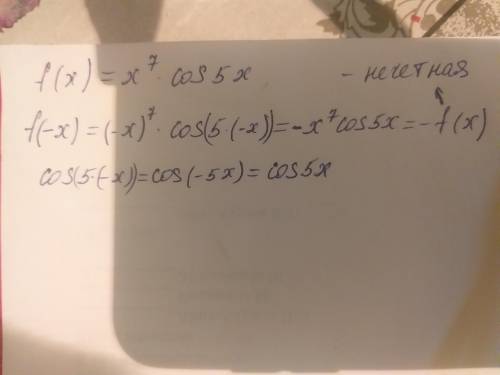 f(x) = x⁷ · cos 5x - нечетная
f(-x) = (-x)⁷ · cos(5·(-x)) = -x⁷ cos 5x = -f(x)
cos(5·(-x)) = cos(-5x) = cos 5x